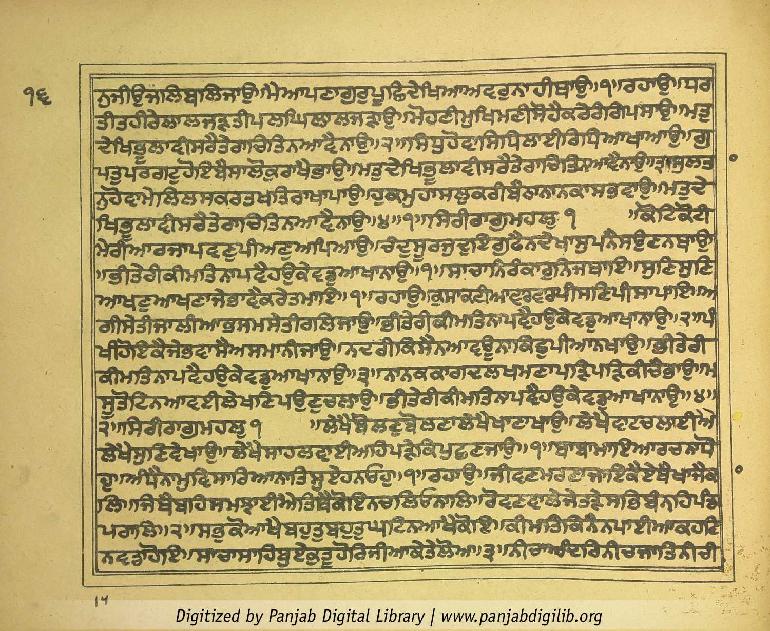 ਨੁਜੀਉਜਲਿਬਲਿਜਾਉ॥ਮੈਆਪਣਾਗੁਰੁਪੂਛਿਦੇਖਿਆਅਵਰੁਨਾਹੀਥਾਉ॥੧॥ਰਹਾਉ॥ਧਰ
੧੬
ਤੀਤਹੀਰੇਲਾਲਜੜਤੀਪਲਘਿਲਾਲਜੜਾਉ॥ਮੋਹਣੀਮੁਖਿਮਣੀਸੋਹੈਕਰੇਰੰਗਿਪਸਾਉ॥ਮਤੁ
ਦੇਖਿਭੂਲਾਵੀਸਰੈਤੇਰਾਚਿਤਿਨਆਵੈਨਾਉ॥੨॥ਸਿਧੁਹੋਵਾਸਿਧਿਲਾਈਰਿਧਿਆਖਾਆਉ॥ਗੁ
ਪਤੁਪਰਗਟੁਹੋਇਬੈਸਾਲੋਕੁਰਾਖੈਭਾਉ॥ਮਤੁਦੇਖਿਭੂਲਾਵੀਸਰੈਤੇਰਾਚਿਤਿਨਆਵੈਨਾਉ॥੩॥ਸੁਲਤਾ
ਨੁਹੋਵਾਮੇਲਿਲਸਕਰਤਖਤਿਰਾਖਾਪਾਉ॥ਹੁਕਮੁਹਾਸਲੁਕਰੀਬੈਠਾਨਾਨਕਾਸਭਵਾਉ॥ਮਤੁਦੇ
ਖਿਭੂਲਾਵੀਸਰੈਤੇਰਾਚਿਤਿਨਆਵੈਨਾਉ॥੪॥੧॥ਸਿਰੀਰਾਗੁਮਹਲੁ ੧ ॥ਕੋਟਿਕੋਟੀ
ਮੇਰੀਆਰਜਾਪਵਣੁਪੀਅਣੁਅਪਿਆਉ॥ਚੰਦੁਸੂਰਜੁਦੁਇਗੁਫੈਨਦੇਖਾਸੁਪਨੈਸਉਣਨਥਾਉ
॥ਭੀਤੇਰੀਕੀਮਤਿਨਾਪਵੈਹਉਕੇਵਡੁਆਖਾਨਾਉ॥੧॥ਸਾਚਾਨਿਰੰਕਾਰੁਨਿਜਥਾਇ॥ਸੁਣਿਸੁਣਿ
ਆਖਣੁਆਖਣਾਜੇਭਾਵੈਕਰੇਤਮਾਇ॥੧॥ਰਹਾਉ॥ਕੁਸਾਕਟੀਆਵਾਰਵਾਰਪੀਸਣਿਪੀਸਾਪਾਇ॥ਅ
ਗੀਸੇਤੀਜਾਲੀਆਭਸਮਸੇਤੀਰਲਿਜਾਉ॥ਭੀਤੇਰੀਕੀਮਤਿਨਾਪਵੈਹਉਕੇਵਡੁਆਖਾਨਾਉ॥੨॥ਪੰ
ਖੀਹੋਇਕੈਜੇਭਵਾਸੈਅਸਮਾਨੀਜਾਉ॥ਨਦਰੀਕਿਸੈਨਆਵਊਨਾਕਿਛੁਪੀਆਨਖਾਉ॥ਭੀਤੇਰੀ
ਕੀਮਤਿਨਾਪਵੈਹਉਕੇਵਡੁਆਖਾਨਾਉ॥੩॥ਨਾਨਕਕਾਗਦਲਖਮਣਾਪੜਿਪੜਿਕੀਚੈਭਾਉ॥ਮ
ਸੂਤੋਟਿਨਆਵਈਲੇਖਣਿਪਉਣੁਚਲਾਉ॥ਭੀਤੇਰੀਕੀਮਤਿਨਾਪਵੈਹਉਕੇਵਡੁਆਖਾਨਾਉ॥੪॥
੨॥ਸਿਰੀਰਾਗੁਮਹਲੁ ੧ ॥ਲੇਖੈਬੋਲਣੁਬੋਲਣਾਲੇਖੈਖਾਣਾਖਾਉ॥ਲੇਖੈਵਾਟਚਲਾਈਐ
ਲੇਖੈਸੁਣਿਵੇਖਾਉ॥ਲੇਖੈਸਾਹਲਵਾਈਅਹਿਪੜੇਕਿਪੁਛਣਜਾਉ॥੧॥ਬਾਬਾਮਾਇਆਰਚਨਾਧੋ
ਹੁ॥ਅੰਧੈਨਾਮੁਵਿਸਾਰਿਆਨਾਤਿਸੁਏਹਨਓਹੁ॥੧॥ਰਹਾਉ॥ਜੀਵਣਮਰਣਾਜਾਇਕੈਏਥੈਖਾਜੈਕਾ
ਲਿ॥ਜਿਥੈਬਹਿਸਮਝਾਈਐਤਿਥੈਕੋਇਨਚਲਿਓਨਾਲਿ॥ਰੋਵਣਵਾਲੇਜੇਤੜੇਸਭਿਬੰਨਹਿਪੰਡ
ਪਰਾਲਿ॥੨॥ਸਭੁਕੋਆਖੈਬਹੁਤੁਬਹੁਤੁਘਾਟਿਨਆਖੈਕੋਇ॥ਕੀਮਤਿਕਿਨੈਨਪਾਈਆਕਹਣਿ
ਨਵਡਾਹੋਇ॥ਸਾਚਾਸਾਹਿਬੁਏਕੁਤੂਹੋਰਿਜੀਆਕੇਤੇਲੋਅ॥੩॥ਨੀਚਾਅੰਦਰਿਨੀਚਜਾਤਿਨੀਚੀ
14
Digitized by Panjab Digital Library | www.panjabdigilib.org